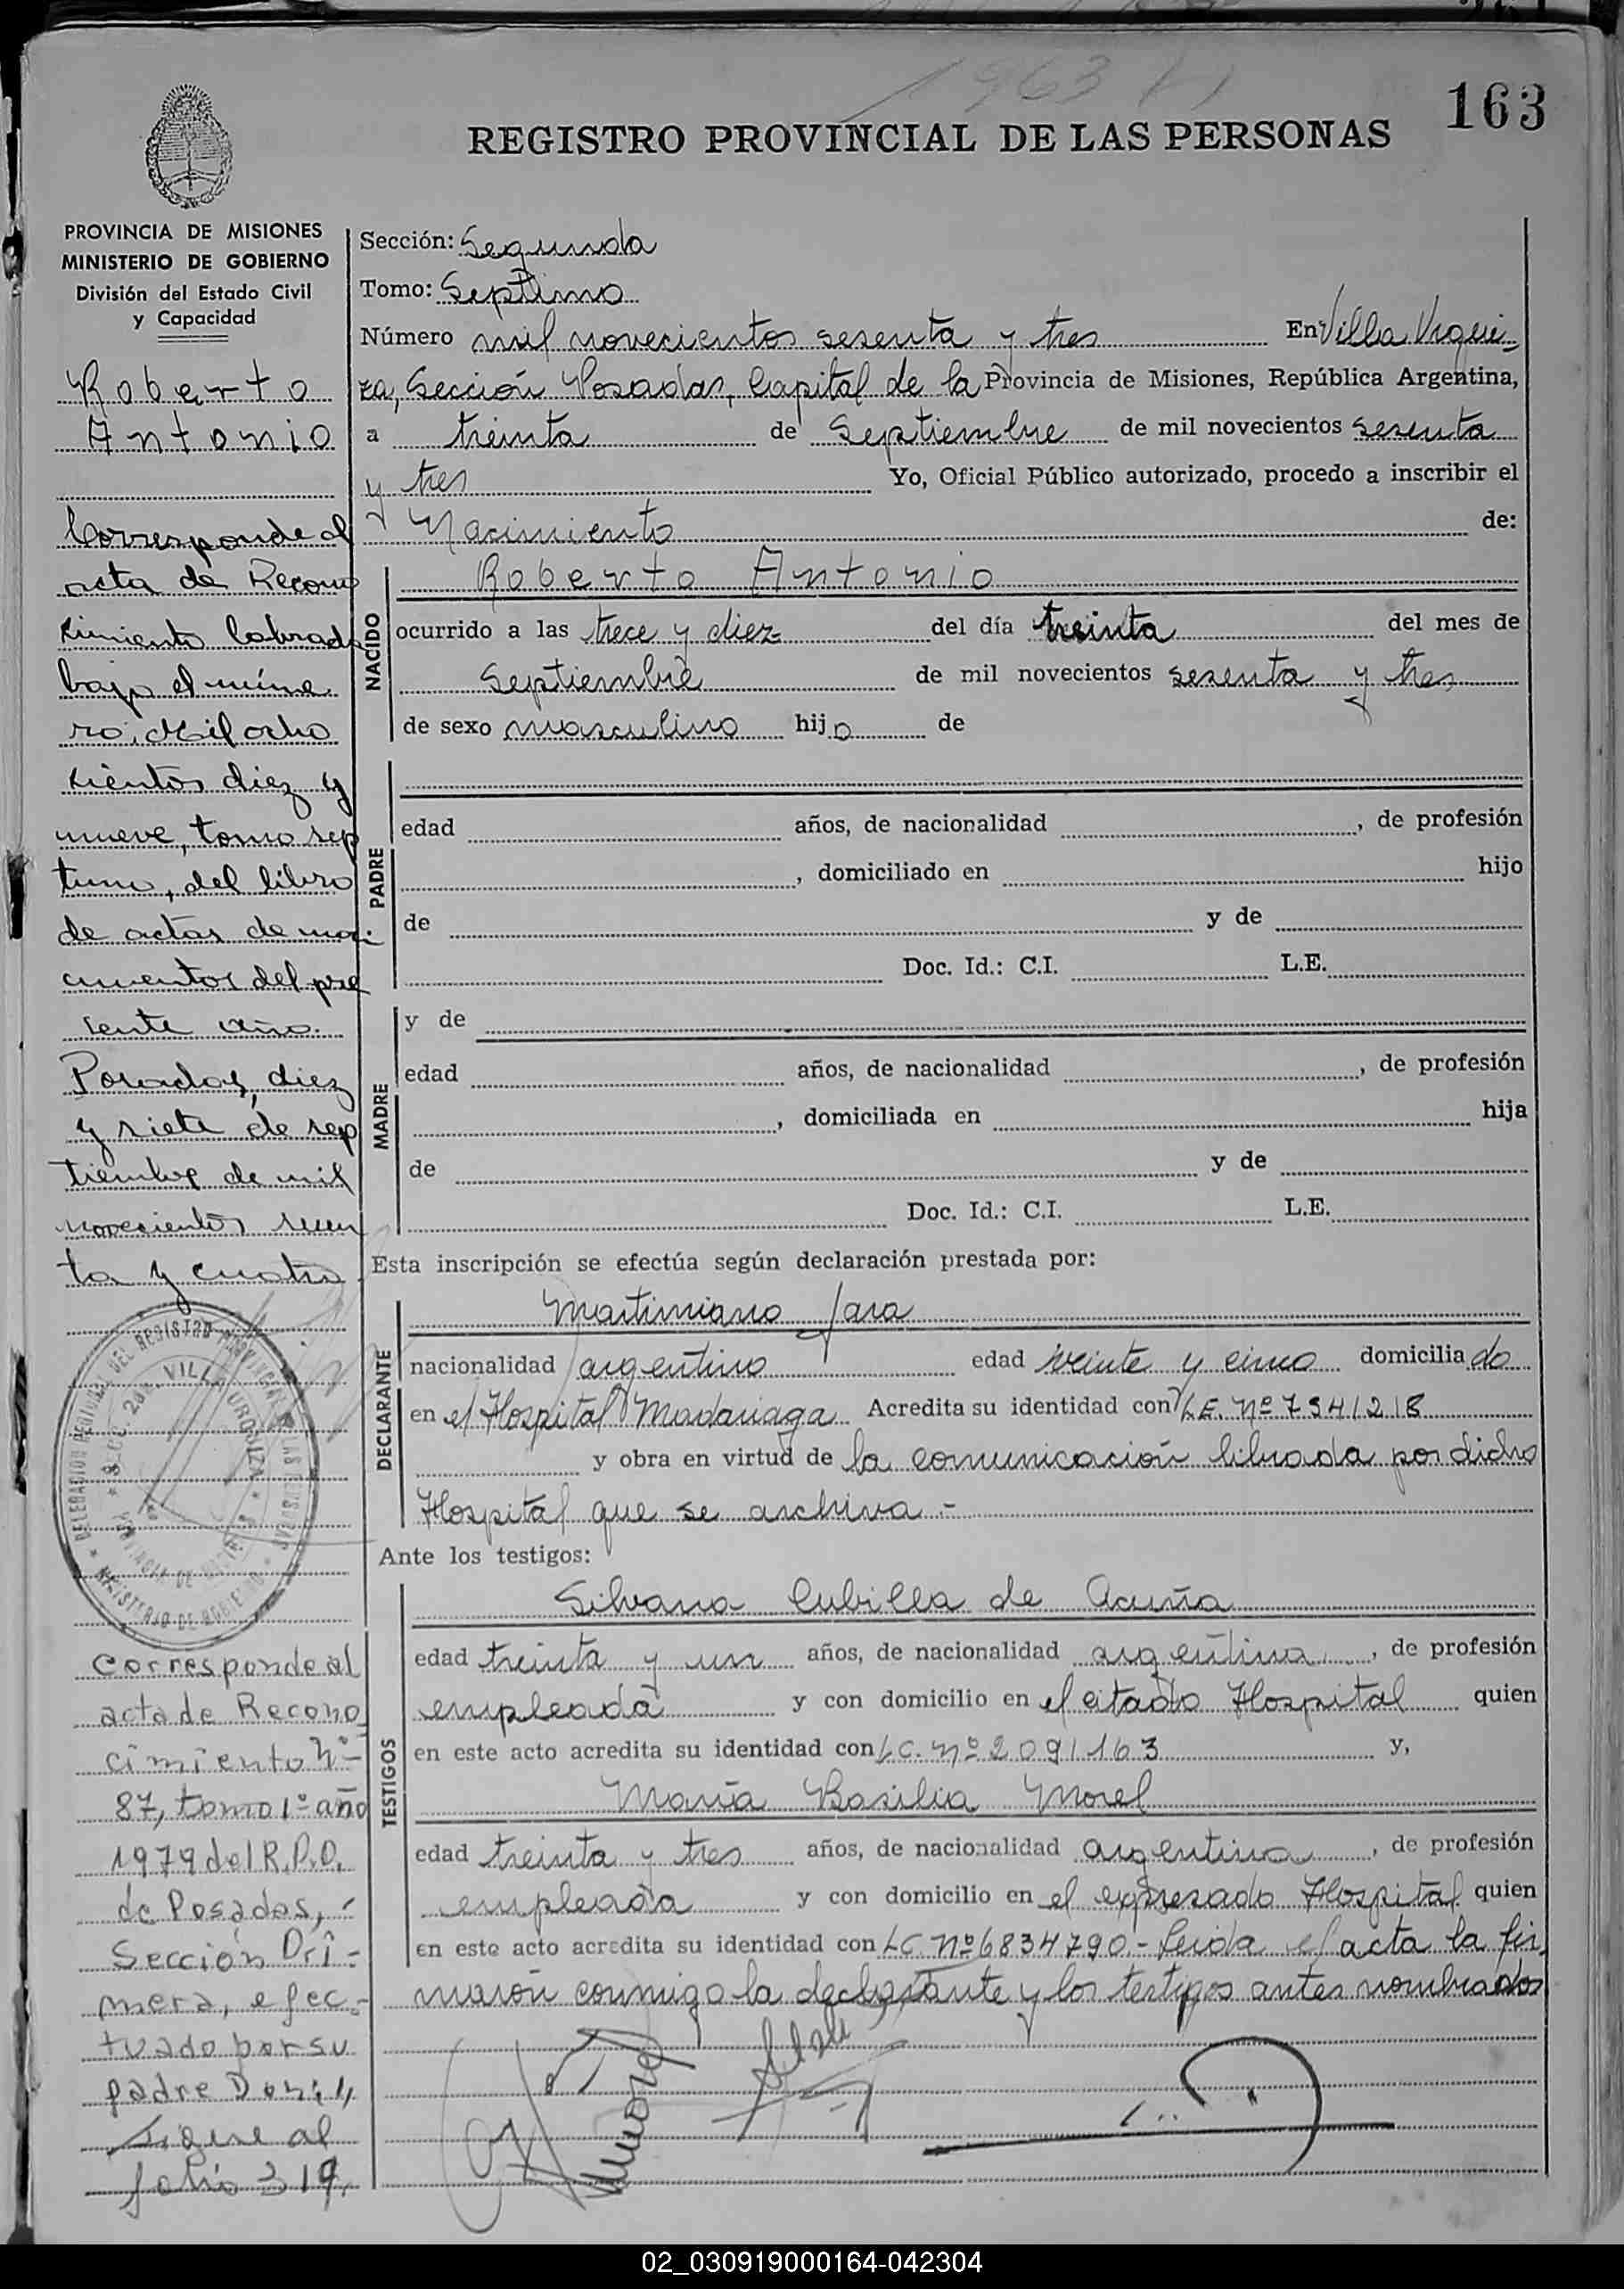 163
REGISTRO PROVINCIAL DE LAS PERSONAS
PROVINCIA DE MISIONES
MINISTERIO DE GOBIERNO
División del Estado Civil
y Capacidad
Roberto
Antonio
Corresponde al
acta de Recono
cimiento labrada
bajo el núme
ro: Mil ocho
cientos diez y
nueve, tomo sep
timo, del libro
de actas de naci
mientos del pre
sente año.
Posadas, diez
y siete de sep
tiembre de mil
novecientos sesen
ta y cuatro
DELEGACION DEL REGISTRO PROVINCIAL DE LAS PERSONAS
SECC. 2da. VILLA URQUIZA
PROVINCIA DE MISIONES
MINISTERIO DE GOBIERNO
Corresponde al
acta de Recono
cimiento Nº-
87, tomo 1º año
1979 del R.P.P.
de Posadas,-
Sección Pri-
mera, efec-
tuado por su
padre Don:
Sigue al
folio 319.
Sección: Segunda
Tomo: Septimo
Número mil novecientos sesenta y tres En Villa Urqui-
za, Sección Posadas, Capital de la Provincia de Misiones, República Argentina,
a treinta de Septiembre de mil novecientos sesenta
y tres Yo, Oficial Público autorizado, procedo a inscribir el
Nacimiento de:
NACIDO
Roberto Antonio
ocurrido a las trece y diez del día treinta del mes de
Septiembre de mil novecientos sesenta y tres
de sexo masculino hijo de
PADRE
edad años, de nacionalidad , de profesión
, domiciliado en hijo
de y de
Doc. Id.: C.I. L.E.
MADRE
y de
edad años, de nacionalidad , de profesión
, domiciliada en hija
de y de
Doc. Id.: C.I. L.E.
Esta inscripción se efectúa según declaración prestada por:
DECLARANTE
Martimiano Jara
nacionalidad argentino edad veinte y cinco domiciliado
en el Hospital Madariaga Acredita su identidad con L.E. Nº 7541218
y obra en virtud de la comunicación librada por dicho
Hospital que se archiva.-
Ante los testigos:
TESTIGOS
Silvana Cubilla de Acuña
edad treinta y un años, de nacionalidad argentina , de profesión
empleada y con domicilio en el citado Hospital quien
en este acto acredita su identidad con L.C. Nº 2091163 y,
María Basilia Morel
edad treinta y tres años, de nacionalidad argentina , de profesión
empleada y con domicilio en el expresado Hospital quien
en este acto acredita su identidad con L.C. Nº 6834790.- Leida el acta la fir-
maron conmigo la declarante y los testigos antes nombrados
02_030919000164-042304